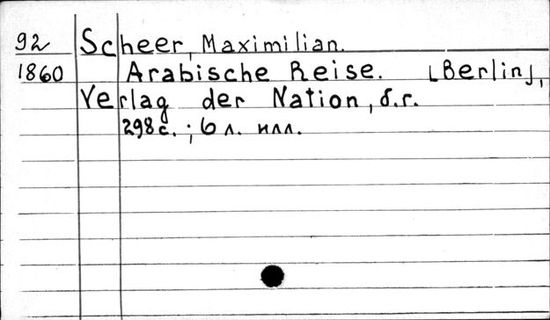 92 Scheer, Maximilian.
1860 Arabische Reise. [Berlin],
Verlag der Nation, б.г.
298 с. ; 6 л. илл.